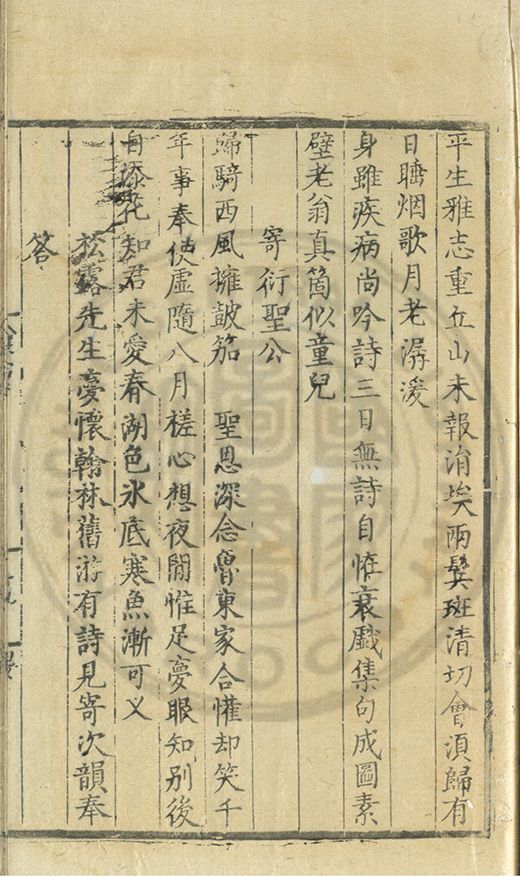 平生雅志重丘山未報涓埃兩鬓斑清切會湏歸有
日睡烟歌月老潺湲
身雖疾病尚吟詩三日無詩自恠衰戱集句成圖素
壁老翁真箇似童兒
寄衍聖公
歸騎西風擁皷笳　聖恩深念魯東家合懽却笑千
年事奉使虛隨八月槎心想夜闌惟足夢眼知別後
自添花知君未愛春湖色氷底寒魚漸可义
松露先生憂懷翰林舊游有詩見寄次韻奉
答